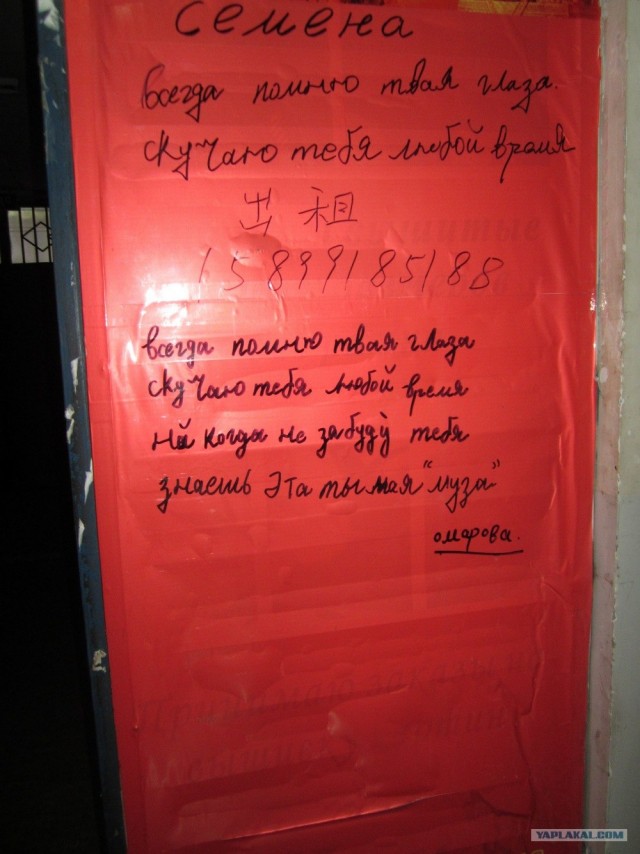 семена
всегда помню твая глаза.
скучаю тебя любой время
出租
15899185188
всегда помню твая глаза
скучаю тебя любой время
ни когды не забуду тебя
знаешь эта ты мая "муза"
омарова.
Принимаю заказы на
вышивку
YAPLAKAL.COM